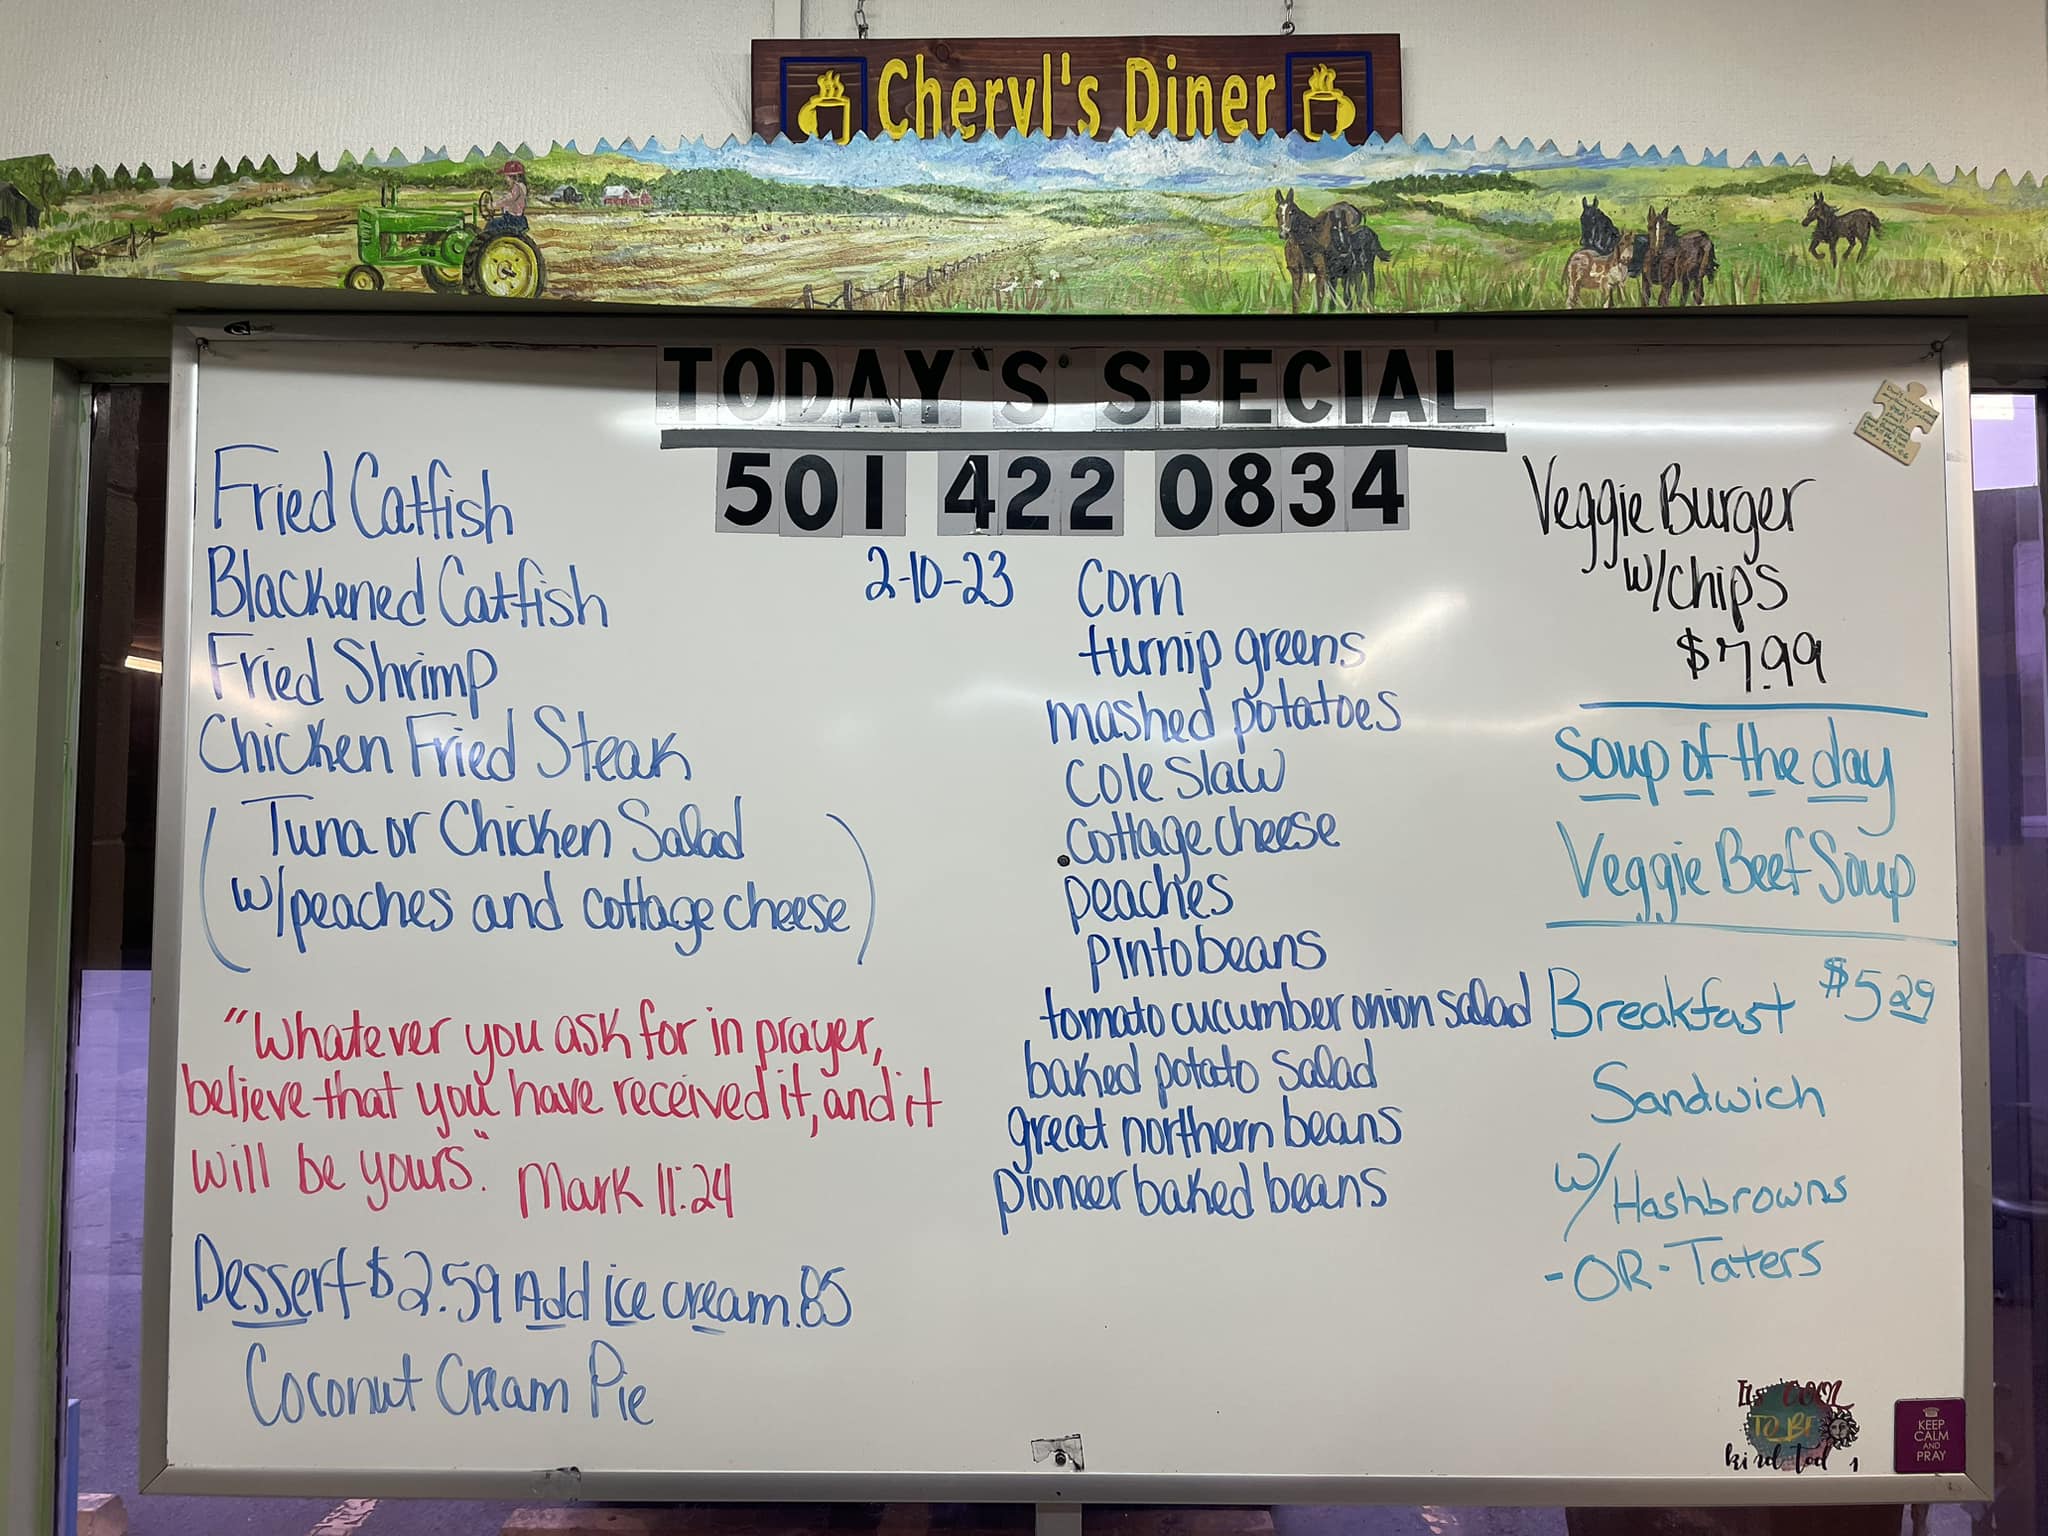 Cheryl's Diner
TODAY'S SPECIAL
501 422 0834
2-10-23
Fried Catfish
Blackened Catfish
Fried Shrimp
Chicken Fried Steak
(Tuna or Chicken Salad
w/peaches and cottage cheese)
"Whatever you ask for in prayer,
believe that you have received it, and it
will be yours." Mark 11:24
Dessert $2.59 Add Ice cream .85
Coconut Cream Pie
Corn
turnip greens
mashed potatoes
Cole Slaw
Cottage cheese
peaches
pinto beans
tomato cucumber onion salad
baked potato salad
great northern beans
pioneer baked beans
Veggie Burger
w/chips
$7.99
Soup of the day
Veggie Beef Soup
Breakfast $5.29
Sandwich
w/Hashbrowns
-OR- Taters
It's COOL
TO BE
kind tod
KEEP
CALM
AND
PRAY